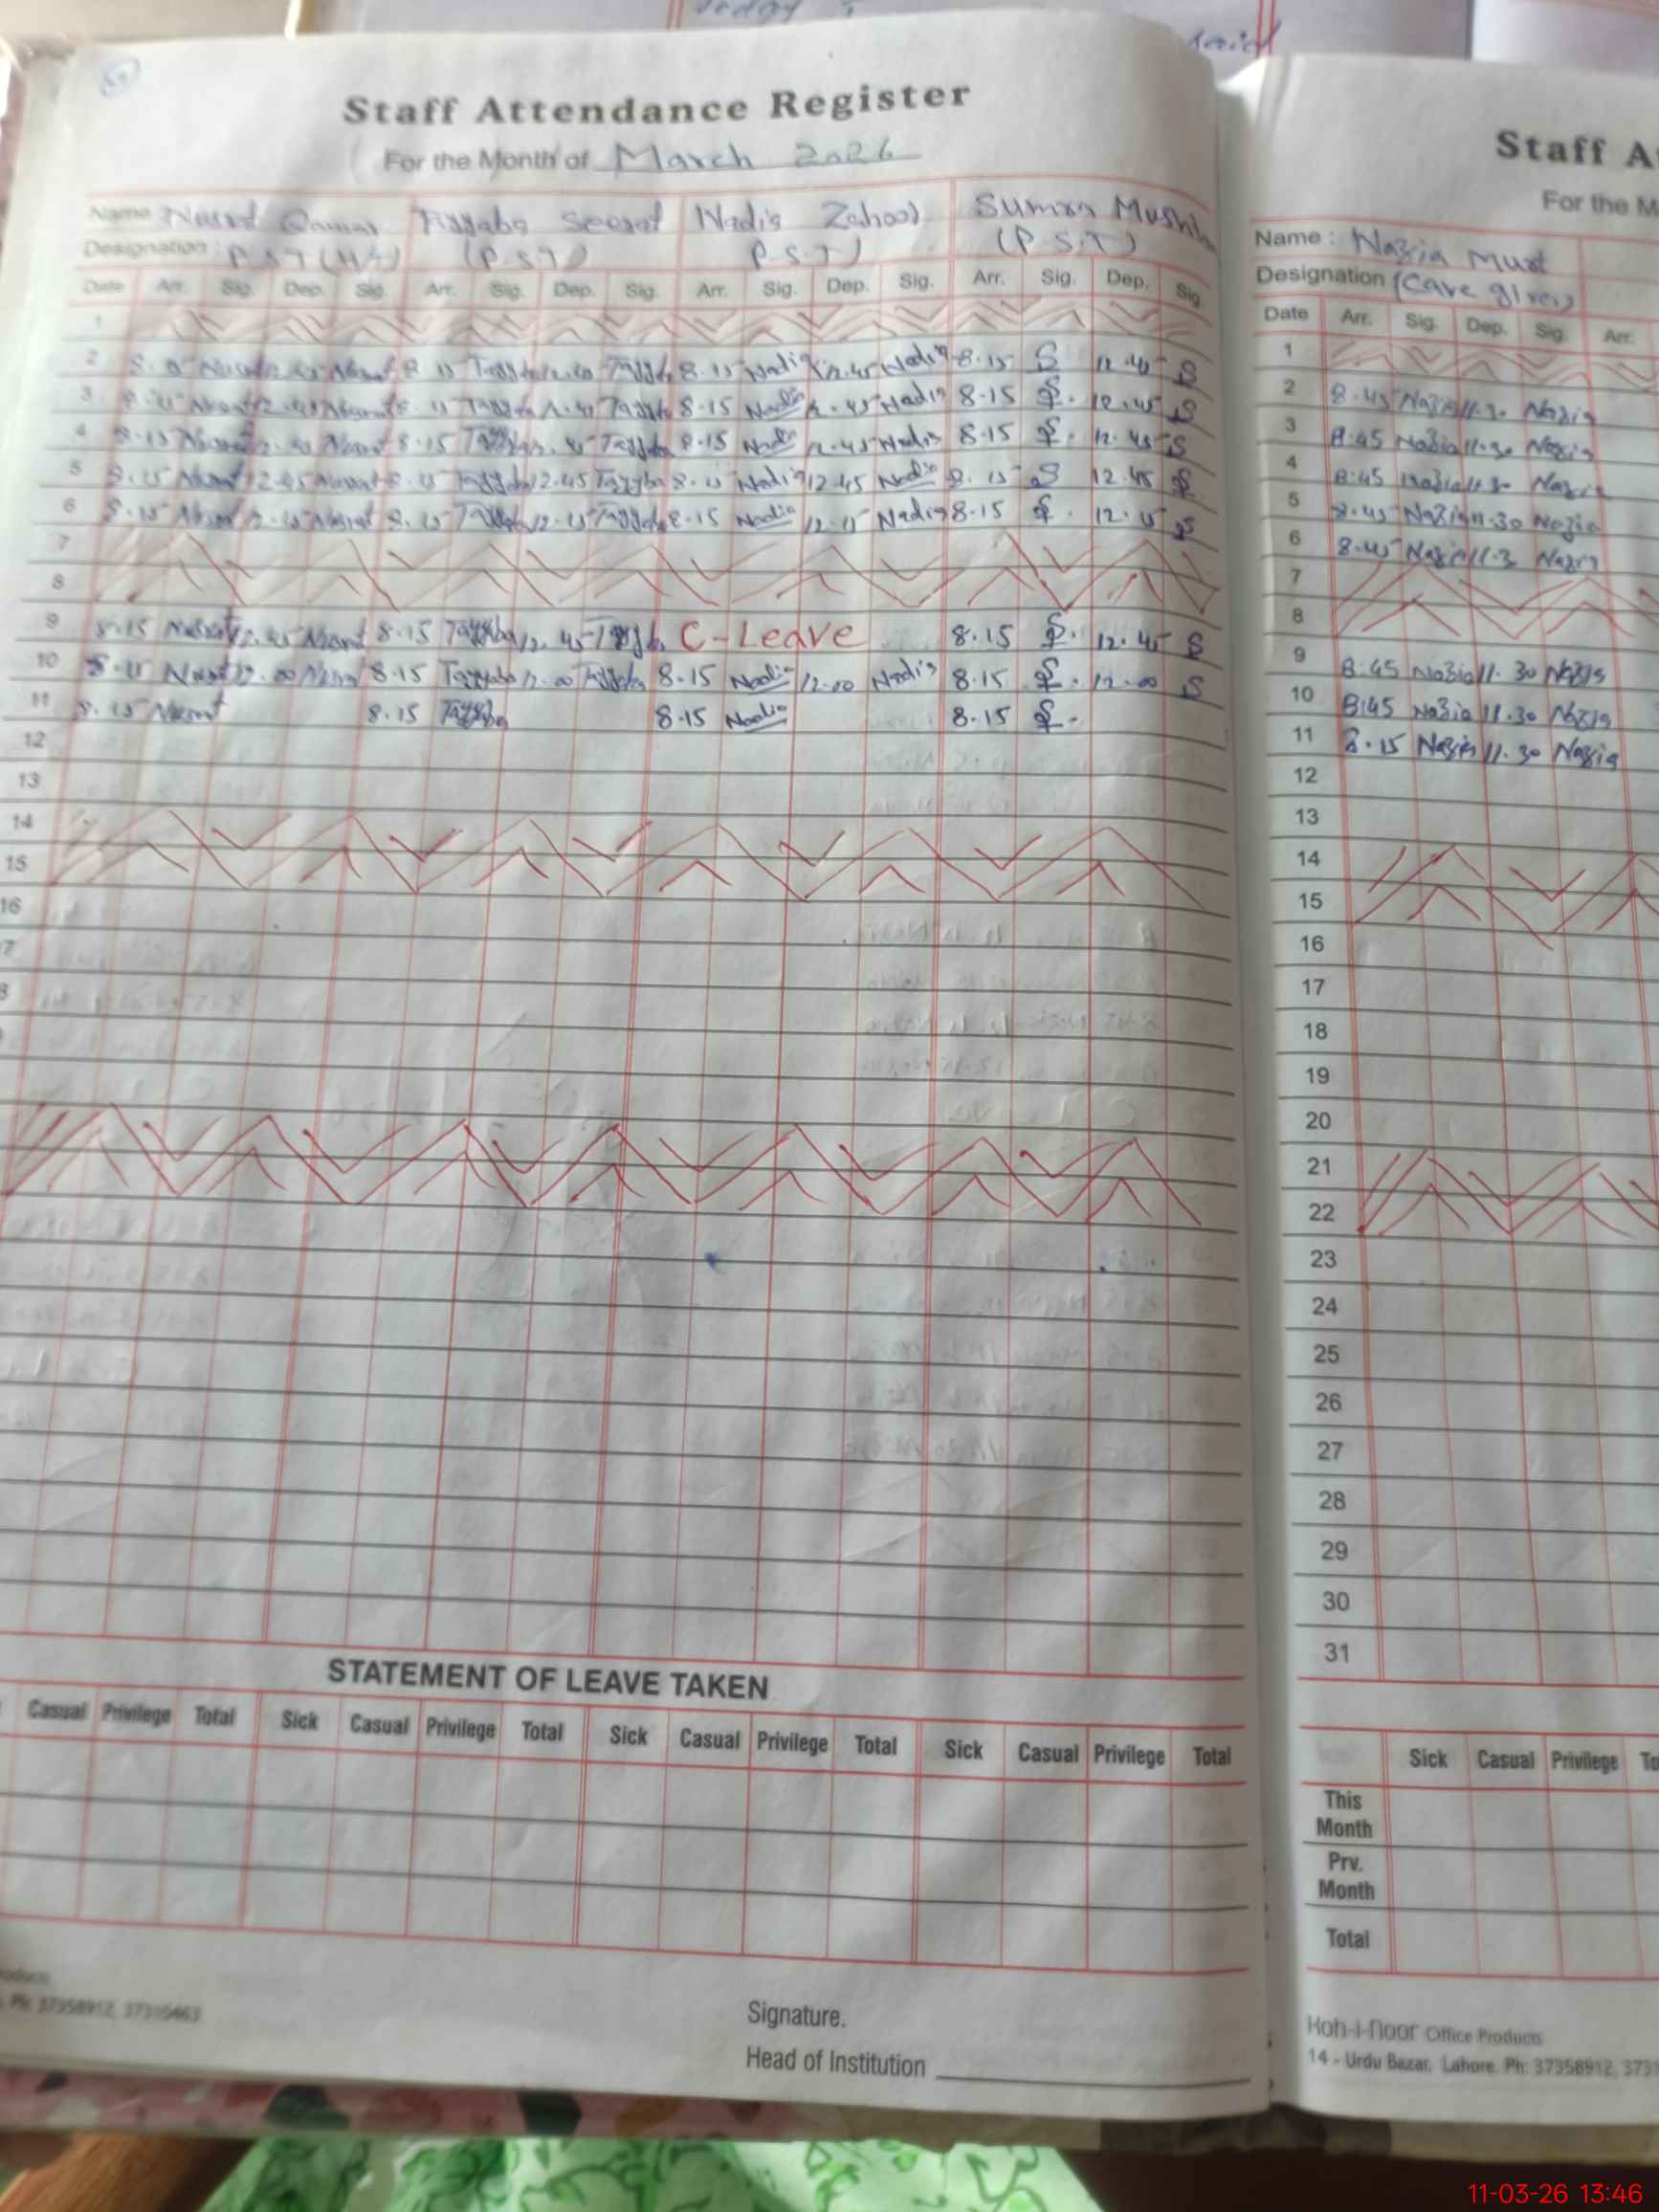 Staff Attendance Register
For the Month of March 2026
Name Nusrat Qamar Tayyaba Seerat Nadia Zahoor Sumra
Designation : P.S.T (P.S.T) P.S.T) (P.S.T)
Date Arr. Sig. Dep. Sig. Arr. Sig. Dep. Sig. Arr. Sig. Dep. Sig. Arr. Sig. Dep. Sig.
1
2 8.15 Nadia 12.45 Nadia 8.15 S 12.45 S
3 8-15 Nadia 12.45 Nadia 8-15 S. 12.45 S
4 8.15 Nusrat 8.15 Tayyba 8.15 Nadia 12.45 Nadia 8.15 S. 12.45 S
5 8.15 Nusrat 12.45 Nusrat 8.15 Tayyba 12.45 Tayyba 8.15 Nadia 12.45 Nadia 8.15 S 12.45 S
6 8.15 Nusrat 8.15 Tayyba 8.15 Nadia Nadia 8.15 S. S
7
8
9 8.15 Nusrat 12.45 Nusrat 8.15 Tayyba 12.45 Tayyba C-Leave 8.15 S. 12.45 S
10 8.15 Nusrat 12.00 8.15 Tayyaba 12.00 Tayyba 8.15 Nadia 12.00 Nadia 8.15 S. 12.00 S
11 8.15 Nusrat 8.15 Tayyba 8.15 Nadia 8.15 S.
12
13
14
15
16
7
STATEMENT OF LEAVE TAKEN
Casual Privilege Total Sick Casual Privilege Total Sick Casual Privilege Total Sick Casual Privilege Total
Ph: 37358912, 37310463
Signature.
Head of Institution
Staff A
For the M
Name : Nazia Must
Designation (Care giver)
Date Arr. Sig. Dep. Sig. Arr.
1
2 8.45 Nazia 11.30 Nazia
3 8.45 Nazia 11.30 Nazia
4 8:45 Nazia 11.30 Nazia
5 8.45 Nazia 11.30 Nazia
6 8.45 Nazia 11.3 Nazia
7
8
9 8:45 Nazia 11.30 Nazia
10 8:45 Nazia 11.30 Nazia
11 8.15 Nazia 11.30 Nazia
12
13
14
15
16
17
18
19
20
21
22
23
24
25
26
27
28
29
30
31
Sick Casual Privilege To
This Month
Prv. Month
Total
Koh-i-Noor Office Products
14 - Urdu Bazar, Lahore. Ph: 37358912, 373
11-03-26 13:46